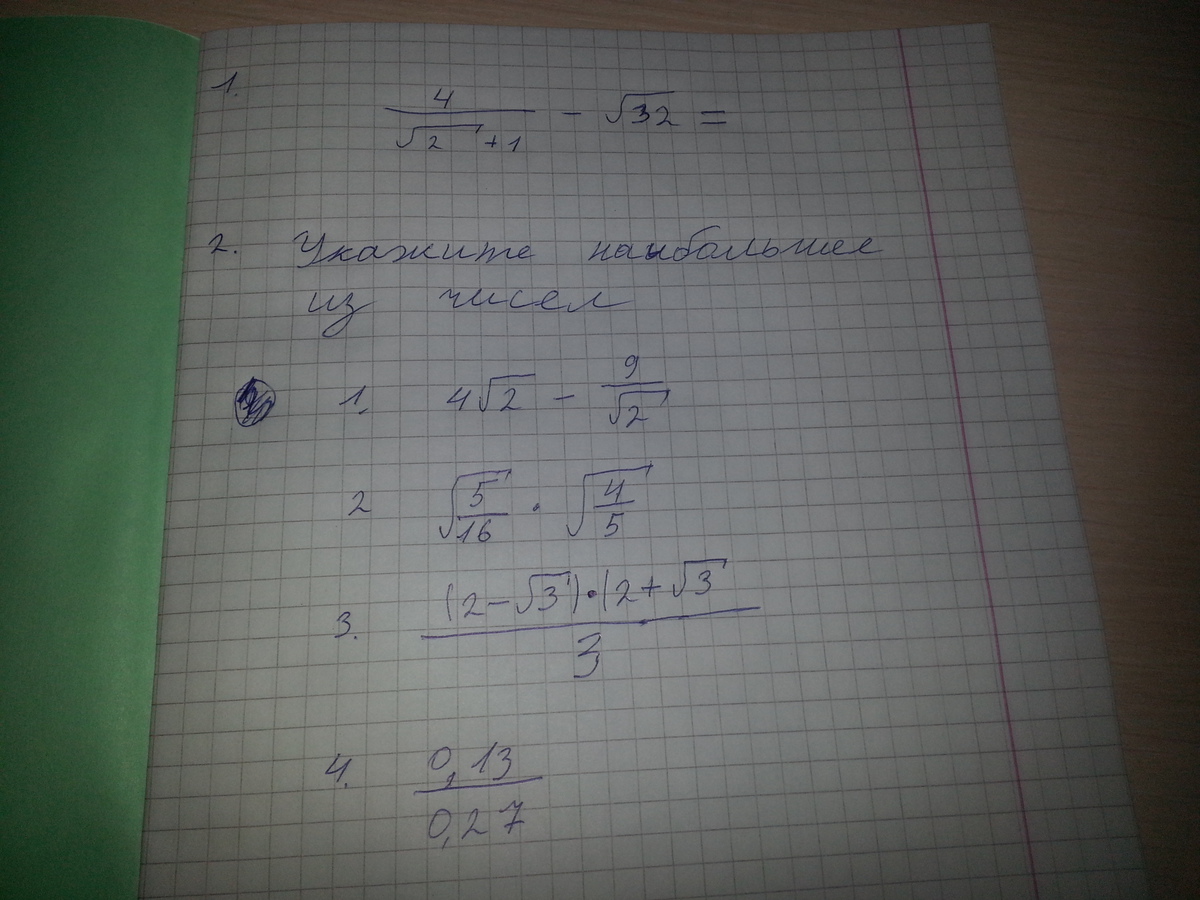 1.
4/(√2 + 1) - √32 =
2. Укажите наибольшее
из чисел
1. 4√2 - 9/√2
2 √(5/16) · √(4/5)
3. (2-√3)·(2+√3 / 3
4. 0,13/0,27